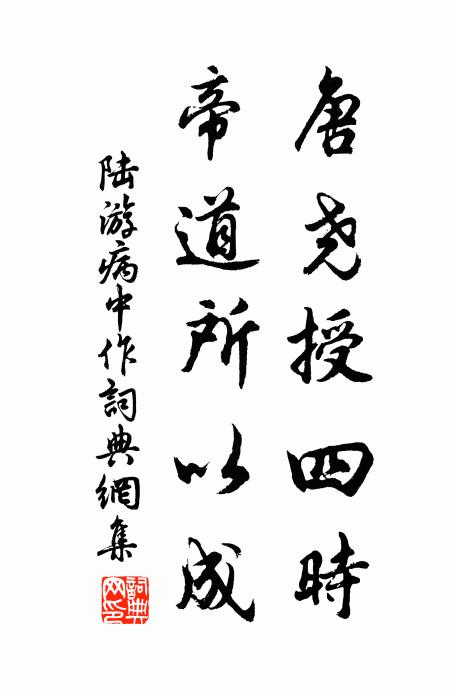 唐尧授四時
帝道所以成
陆游病中作詞典網集
詞典網印